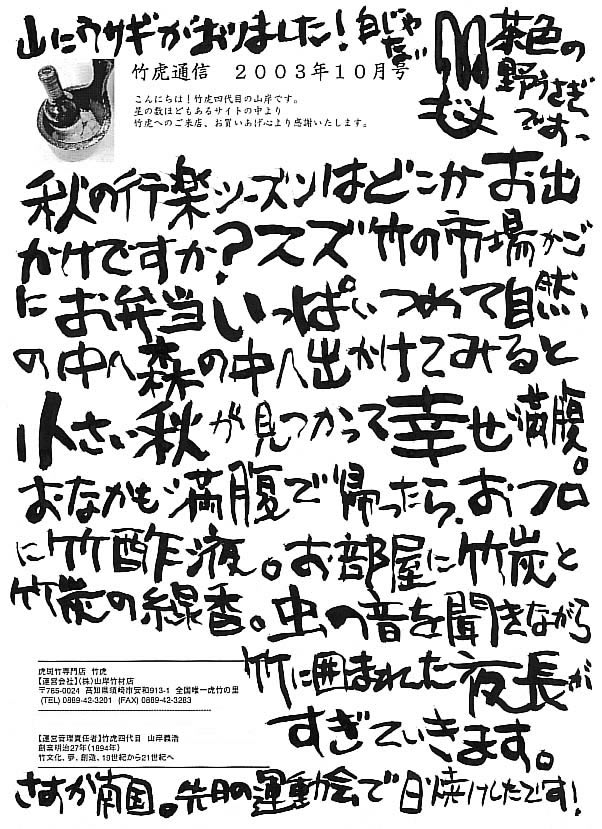 山にウサギがおりました!
茶色の
野うさぎ
です。
竹虎通信 2003年10月号
こんにちは!竹虎四代目の山岸です。
星の数ほどもあるサイトの中より
竹虎へのご来店、お買いあげ心より感謝いたします。
秋の行楽シーズンはどこかお出
かけですか?スズ竹の市場かご
にお弁当いっぱいつめて自然
の中へ森の中へ出かけてみると
小さい秋が見つかって幸せ満腹。
おなかも満腹で帰ったら、おフロ
に竹酢液。お部屋に竹炭と
竹炭の線香。虫の音を聞きながら
竹に囲まれた夜長が
すぎていきます。
虎斑竹専門店 竹虎
【運営会社】(株)山岸竹材店
〒785-0024 高知県須崎市安和913-1 全国唯一虎竹の里
(TEL) 0889-42-3201 (FAX) 0889-42-3283
【運営管理責任者】竹虎四代目 山岸義浩
創業明治27年(1894年)
竹文化、夢、創造、19世紀から21世紀へ
さすが南国。先月の運動会で日焼けしたです!